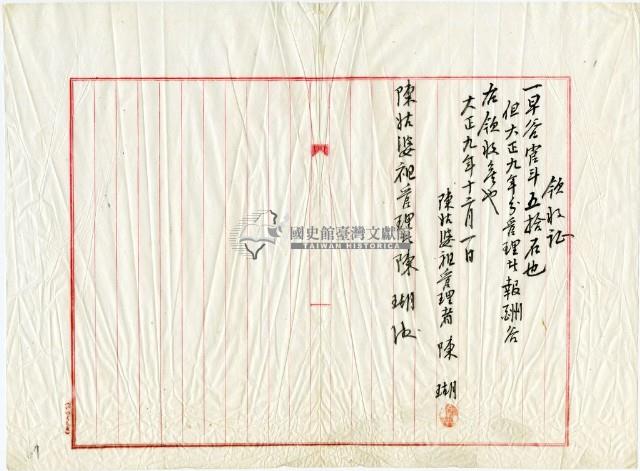 領收証
一早谷官斗五拾石也
但大正九年分管理人報酬谷
右領收候也
大正九年十二月一日
陳姑婆祖管理者 陳 瑚
陳姑婆祖管理人陳 瑚 殿
國史館臺灣文獻館
TAIWAN HISTORICA